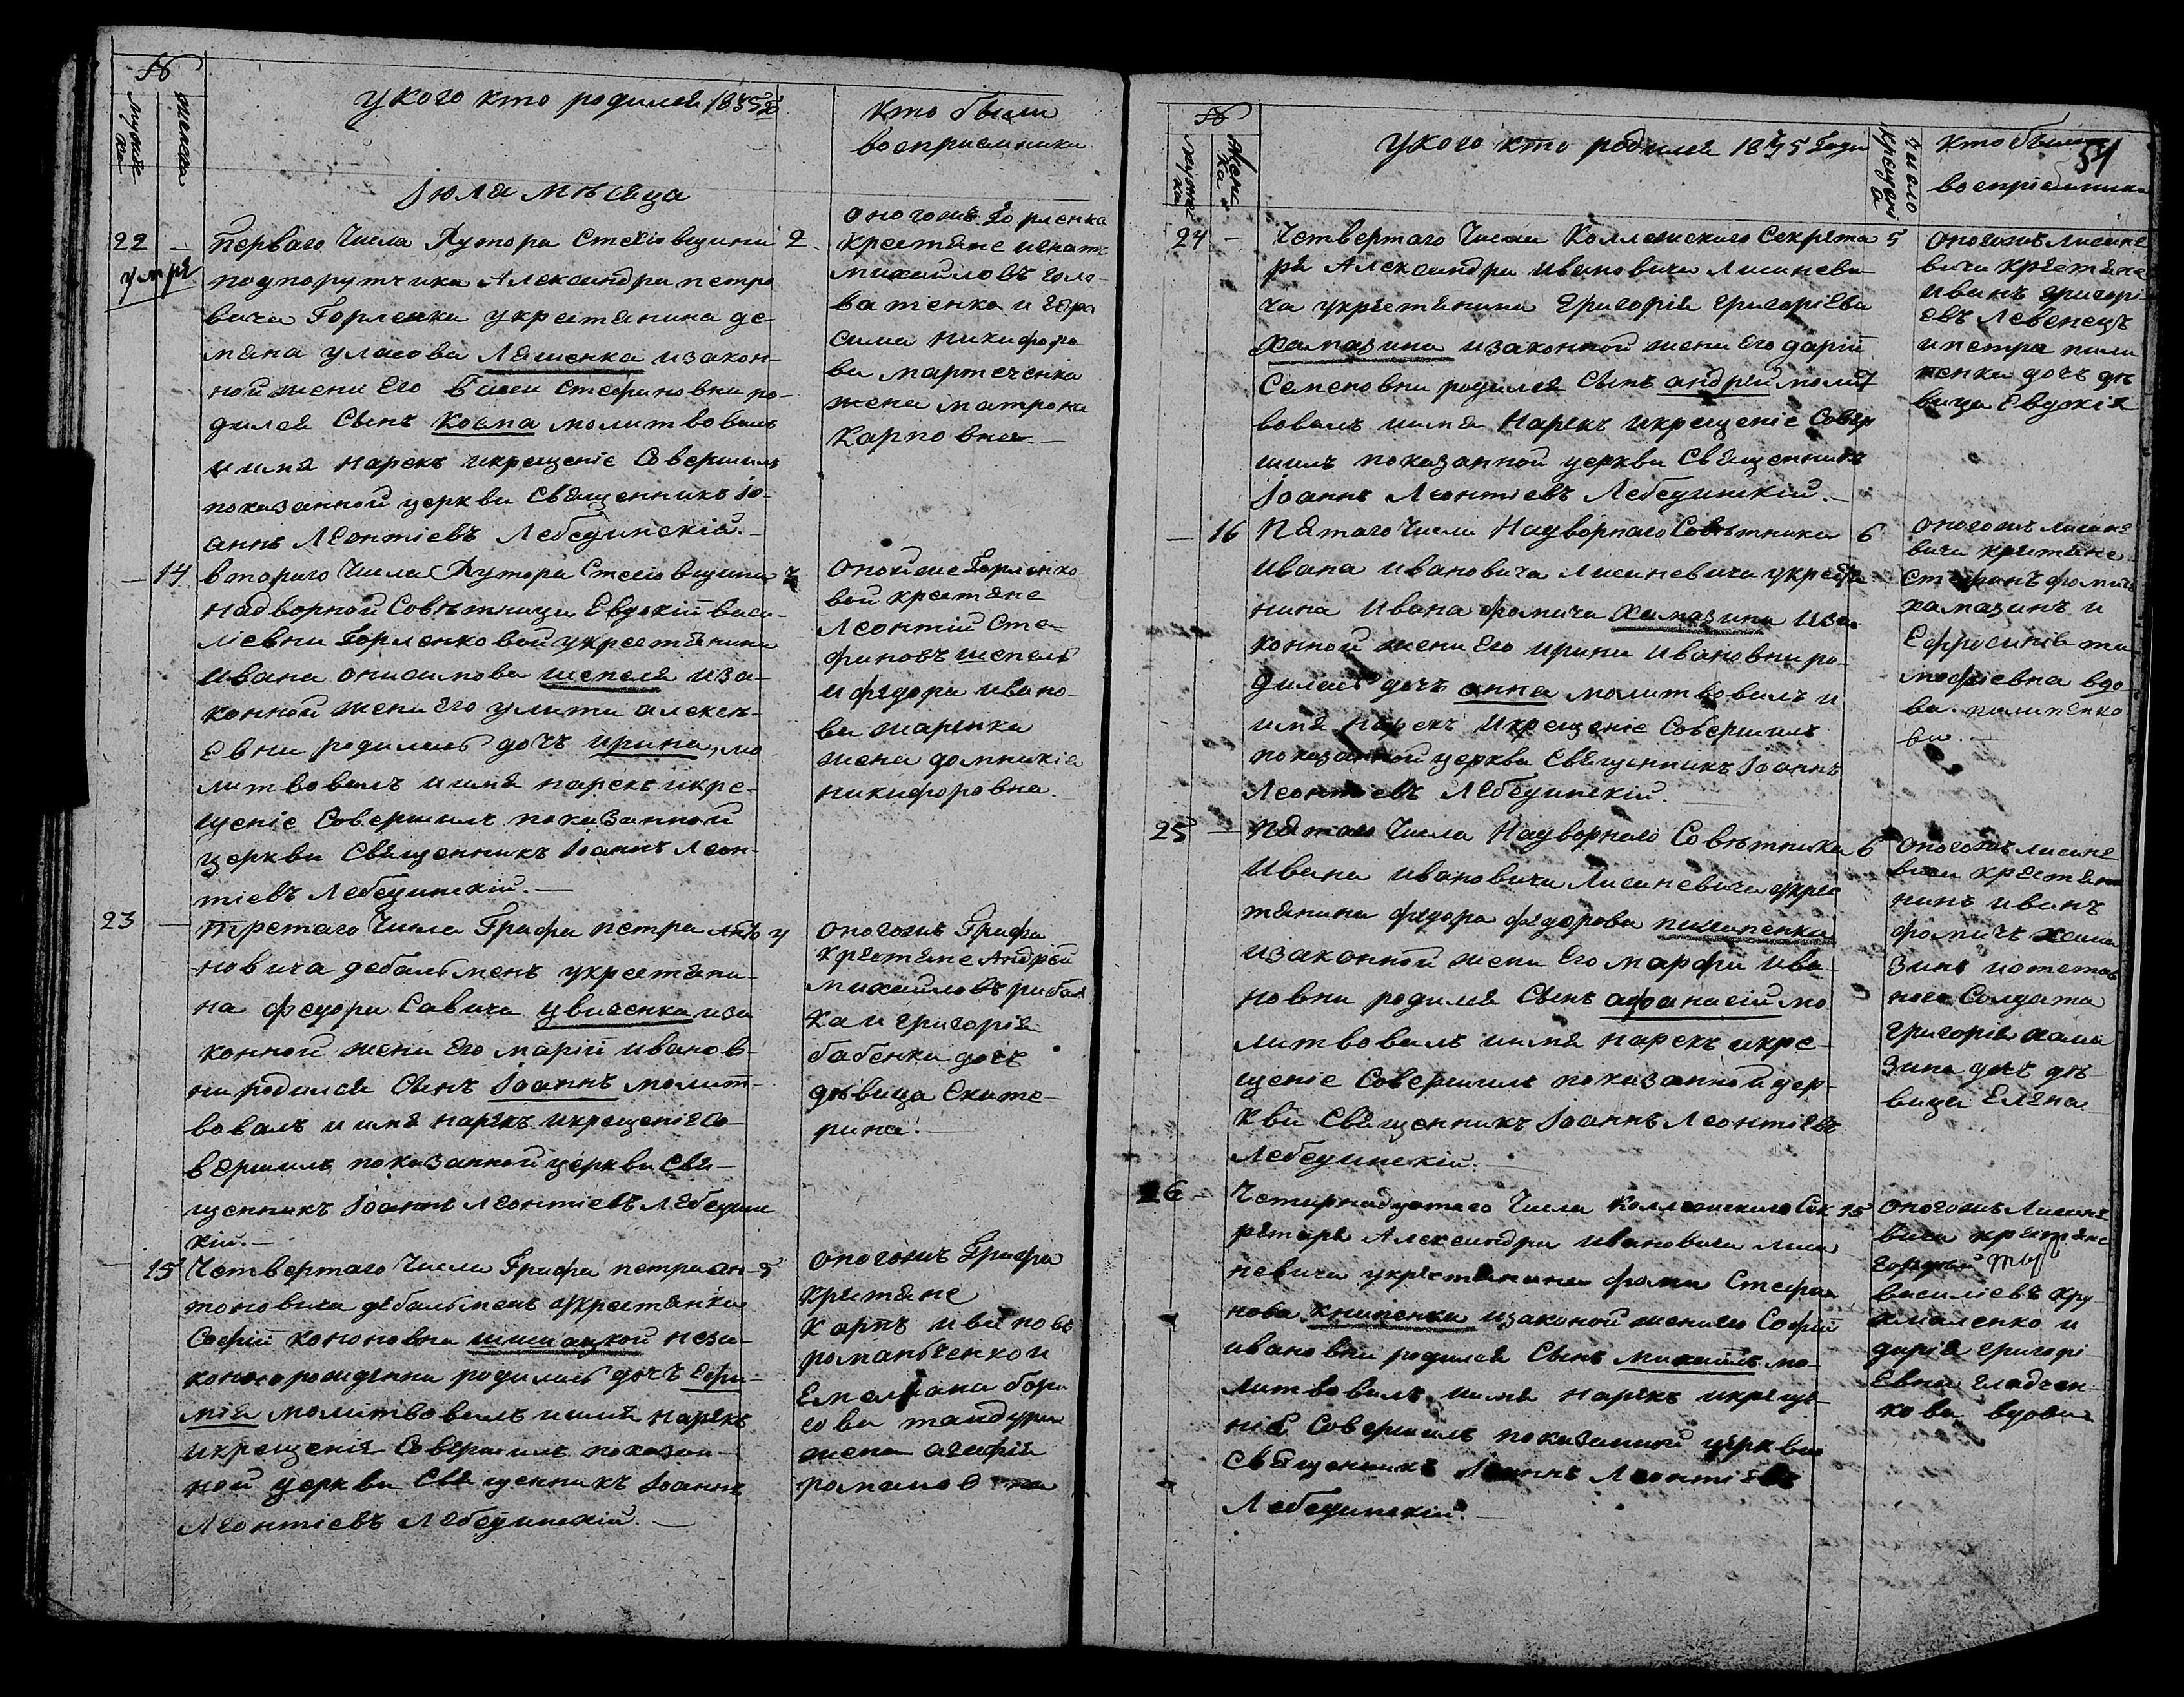 №
мужеска
женска
у кого кто родился 1835
кто были
воспріемники
Іюля мѣсяца
22 — перваго Числа Хутора Стасіовщини 2
умре
подпорутчика Александра петро
вича Горленка у крестянина де-
мяна уласова Ляшенка и закон-
ной жени Его Стефановни ро-
дился Сынъ Косма молитвовалъ
и имя нарекъ и крещеніе Совершилъ
показанной церкви Священникъ Іо-
аннъ Леонтіевъ Лебединскій. —
оногожъ Горленка
крестяне игнатъ
михайловъ голо-
ватенко и гера
сима никифоро
ва мартеченка
жена матрона
Карповна —
— 14 втораго Числа Хутора Стасіовщини 3
Надворной Совѣтници Евдокіи васи-
ліевни Горленковой у крестянина
ивана онисимова шепеля и за-
конной жени Его улити алексѣ-
Евни родилась дочъ ирина, мо
литвовалъ и имя нарекъ и кре-
щеніе Совершилъ показанной
церкви Священникъ Іоаннъ Леон-
тіевъ Лебединскій. —
Оной же Горленко
вой крестяне
Леонтій Сте-
фановъ шепель
и федора ивано-
ва шаренка
жена домникія
никифоровна.
23 — третаго Числа Графа петра анто 4
новича дебальменъ у крестяни-
на федора Савича увиченка и за
конной жени Его маріи иванов-
ни родился Сынъ Іоаннъ молит-
вовалъ и имя нарекъ и крещеніе Со-
вершилъ показанной церкви Свя-
щенникъ Іоаннъ Леонтіевъ Лебедин
кій. —
оногожъ Графа
Крестяне Андрей
михайловъ рибал
ка и григорія
бабенка дочъ
дѣвица Екате-
рина. —
— 15 Четвертаго Числа Графа петра ан- 5
тоновича дебальменъ у крестянки
Софіи кононовни шишацкой неза-
конорожденна родилась дочъ Ефи-
мія молитвовалъ и имя нарекъ
и крещенія Совершилъ показан-
ной церкви Священникъ Іоаннъ
Леонтіевъ Лебединскій. —
оногожъ Графа
Крестяне
Карпъ ивановъ
романченко и
Емеліана бори
сова тандури
жена агафія
романовна
№
мужеска
женска
у кого кто родился 1835 Года
Число
крещенія
кто были
воспріемники
54
24 — Четвертаго Числа Коллежскаго Секрета 5
ря Александра ивановича Лисаневи-
ча у крестянина григорія григоріева
Хамазина и законной жени Его даріи
Семеновни родился Сынъ андрей молит
вовалъ и имя Нарекъ и крещеніе Совер
шилъ показанной церкви Священникъ
Іоаннъ Леонтіевъ Лебединскій. —
оногожъ Лисане
вича крестяне
иванъ григорі
евъ Левенецъ
и петра пили
пенка дочъ дѣ
вица Евдокія
— 16 Пятаго Числа Надворнаго Совѣтника 6
ивана ивановича Лисаневича у крестя
нина ивана фомича хамазина и за
конной жени Его ирини ивановни ро-
дилась дочъ анна молитвовалъ и
имя нарекъ и крещеніе Совершилъ
показанной церкви Священникъ Іоаннъ
Леонтіевъ Лебединскій. —
оногожъ лисане
вича крестяне
Стефанъ фомичъ
хамазинъ и
Ефросинія ти
мофіевна вдо
ва пилипенко
ва —
25 — пятаго Числа Надворнаго Совѣтника 6
ивана ивановича Лисаневича у крес
тянина федора федорова пилипенка
и законной жени Его марфи ива
новни родился Сынъ афанасій мо
литвовалъ и имя нарекъ и кре-
щеніе Совершилъ показанной цер-
кви Священникъ Іоаннъ Леонтіевъ
Лебединскій. —
оногожъ лисане
вича крестяни
нинъ иванъ
фомичъ хама
зинъ и отстав
ного Солдата
григорія хама
зина дочъ дѣ
вица Елена
26 — Четирнадцатаго Числа Коллежскаго Сек 15
ретаря Александра ивановича Лиса
невича у крестянина фоми Стефа
нова книпенка и законой жени его Софіи
ивановни родился Сынъ михаилъ мо-
литвовалъ и имя нарекъ и креще
ніе Совершилъ показанной церкви
Священникъ Іоаннъ Леонтіевъ
Лебединскій. —
оногожъ Лисане
вича крестяне
василіевъ кру
хмаленко и
дарія григорі
Евна гладчен
кова вдова